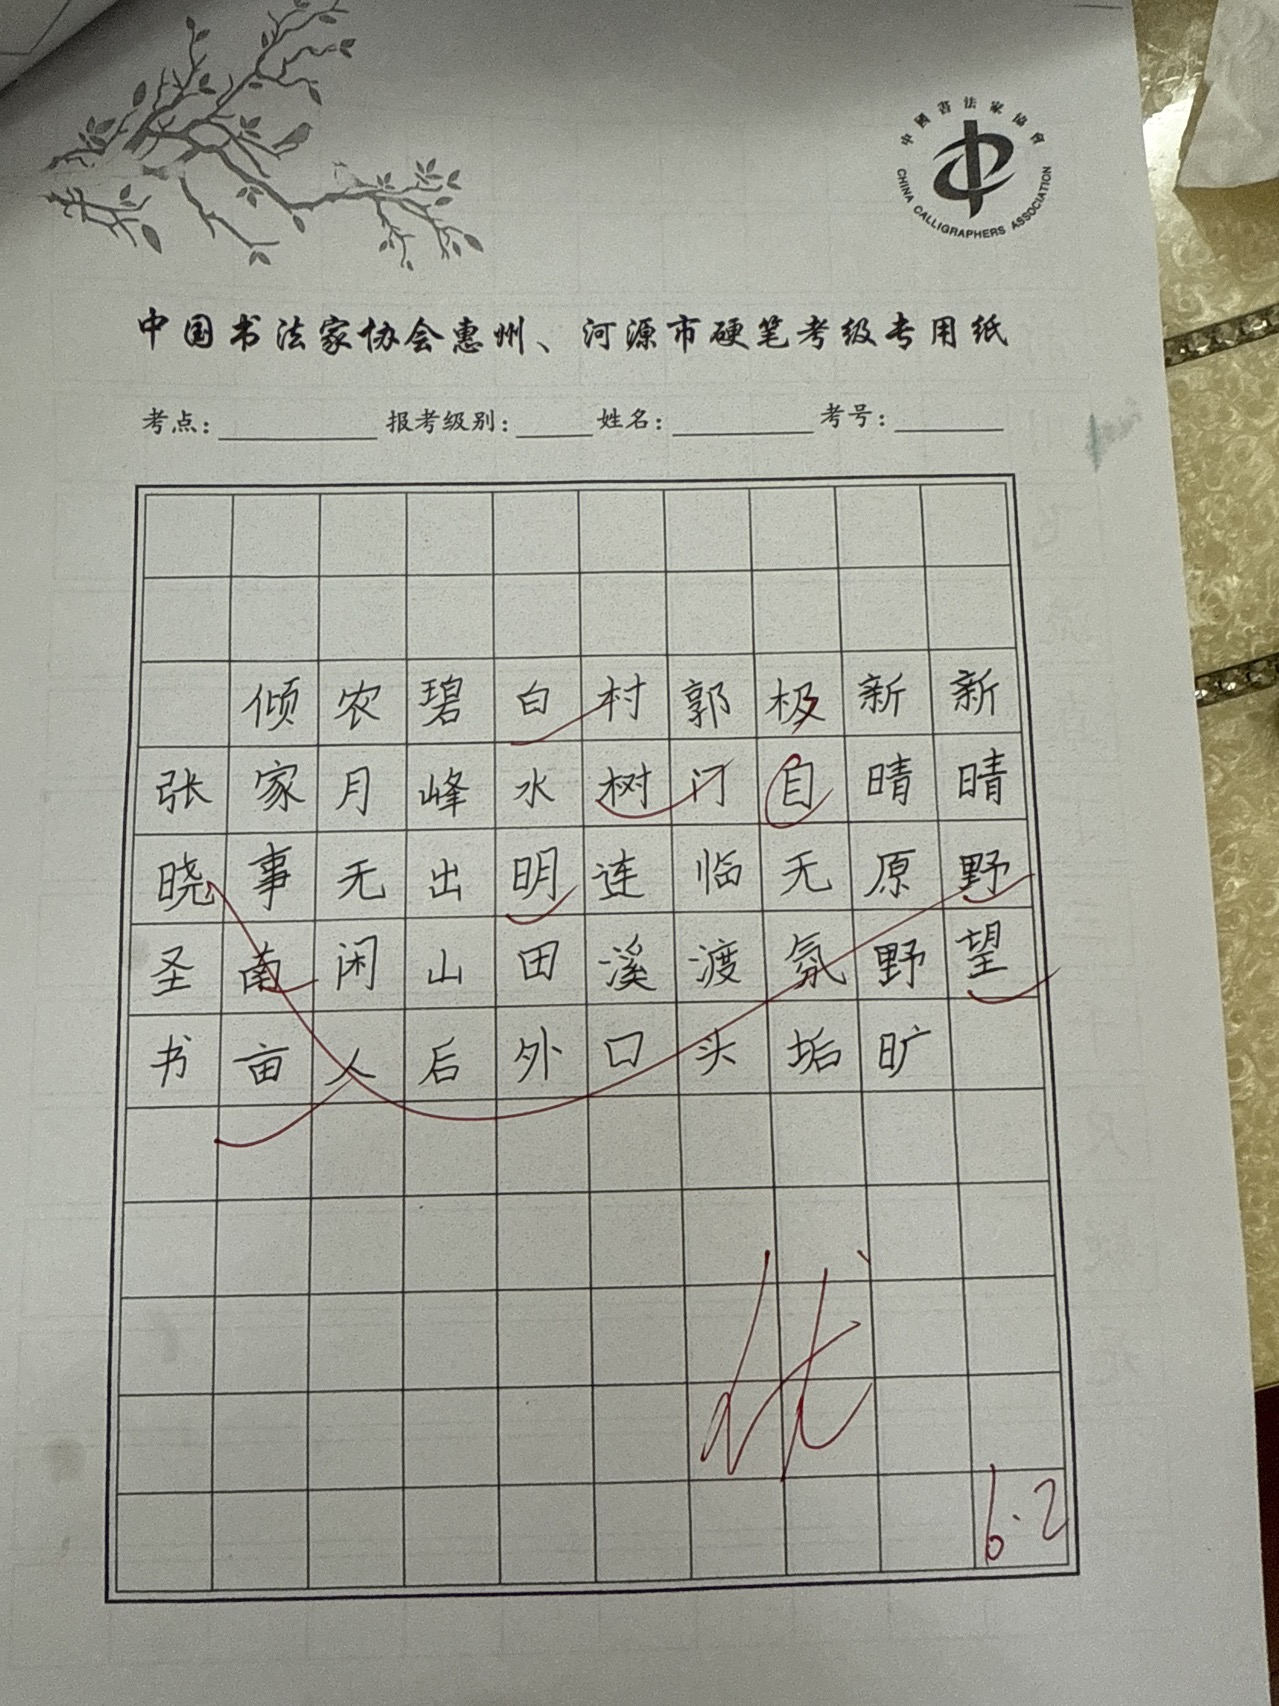 中國書法家協會
CHINA CALLIGRAPHERS ASSOCIATION
中国书法家协会惠州、河源市硬笔考级专用纸
考点： 报考级别： 姓名： 考号：
新晴野望
新晴原野旷
极自无氛垢
郭门临渡头
村树连溪口
白水明田外
碧峰出山后
农月无闲人
倾家事南亩
张晓圣书
优
6.2